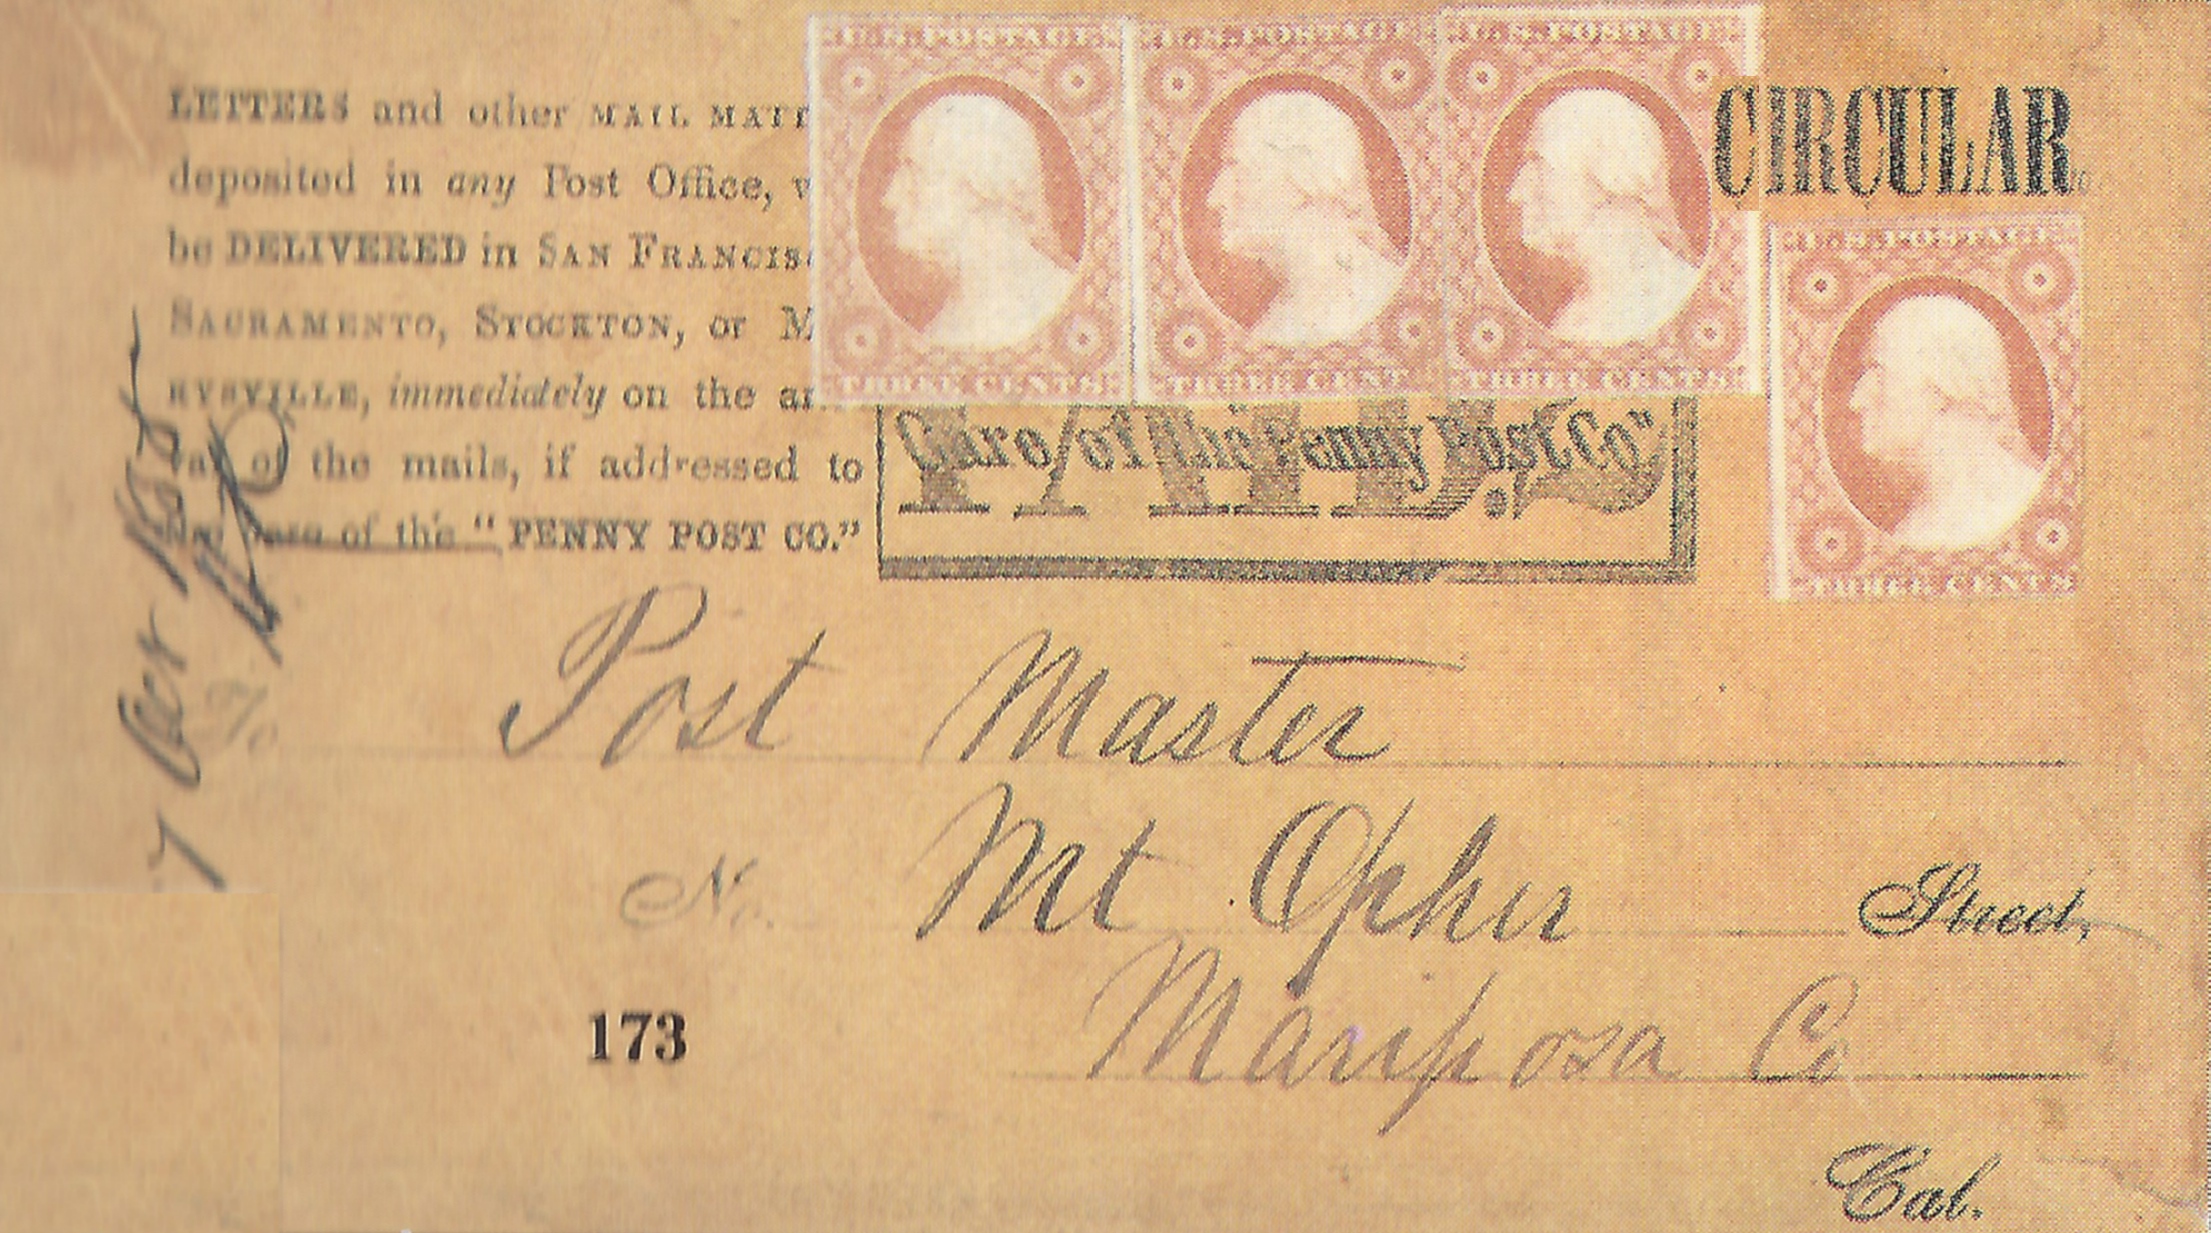 U.S. POSTAGE U.S. POSTAGE U.S. POSTAGE
CIRCULAR
LETTERS and other MAIL MATT
deposited in any Post Office, w
be DELIVERED in SAN FRANCIS
SACRAMENTO, STOCKTON, or M
RYSVILLE, immediately on the ar
val of the mails, if addressed to
care of the "PENNY POST CO."
THREE CENTS THREE CENT THREE CENTS
U.S. POSTAGE
THREE CENTS
Care of the Penny Post Co"
PAID.
To
Post Master
No. Mt Opher Street,
173
Mariposa Co
Cal.